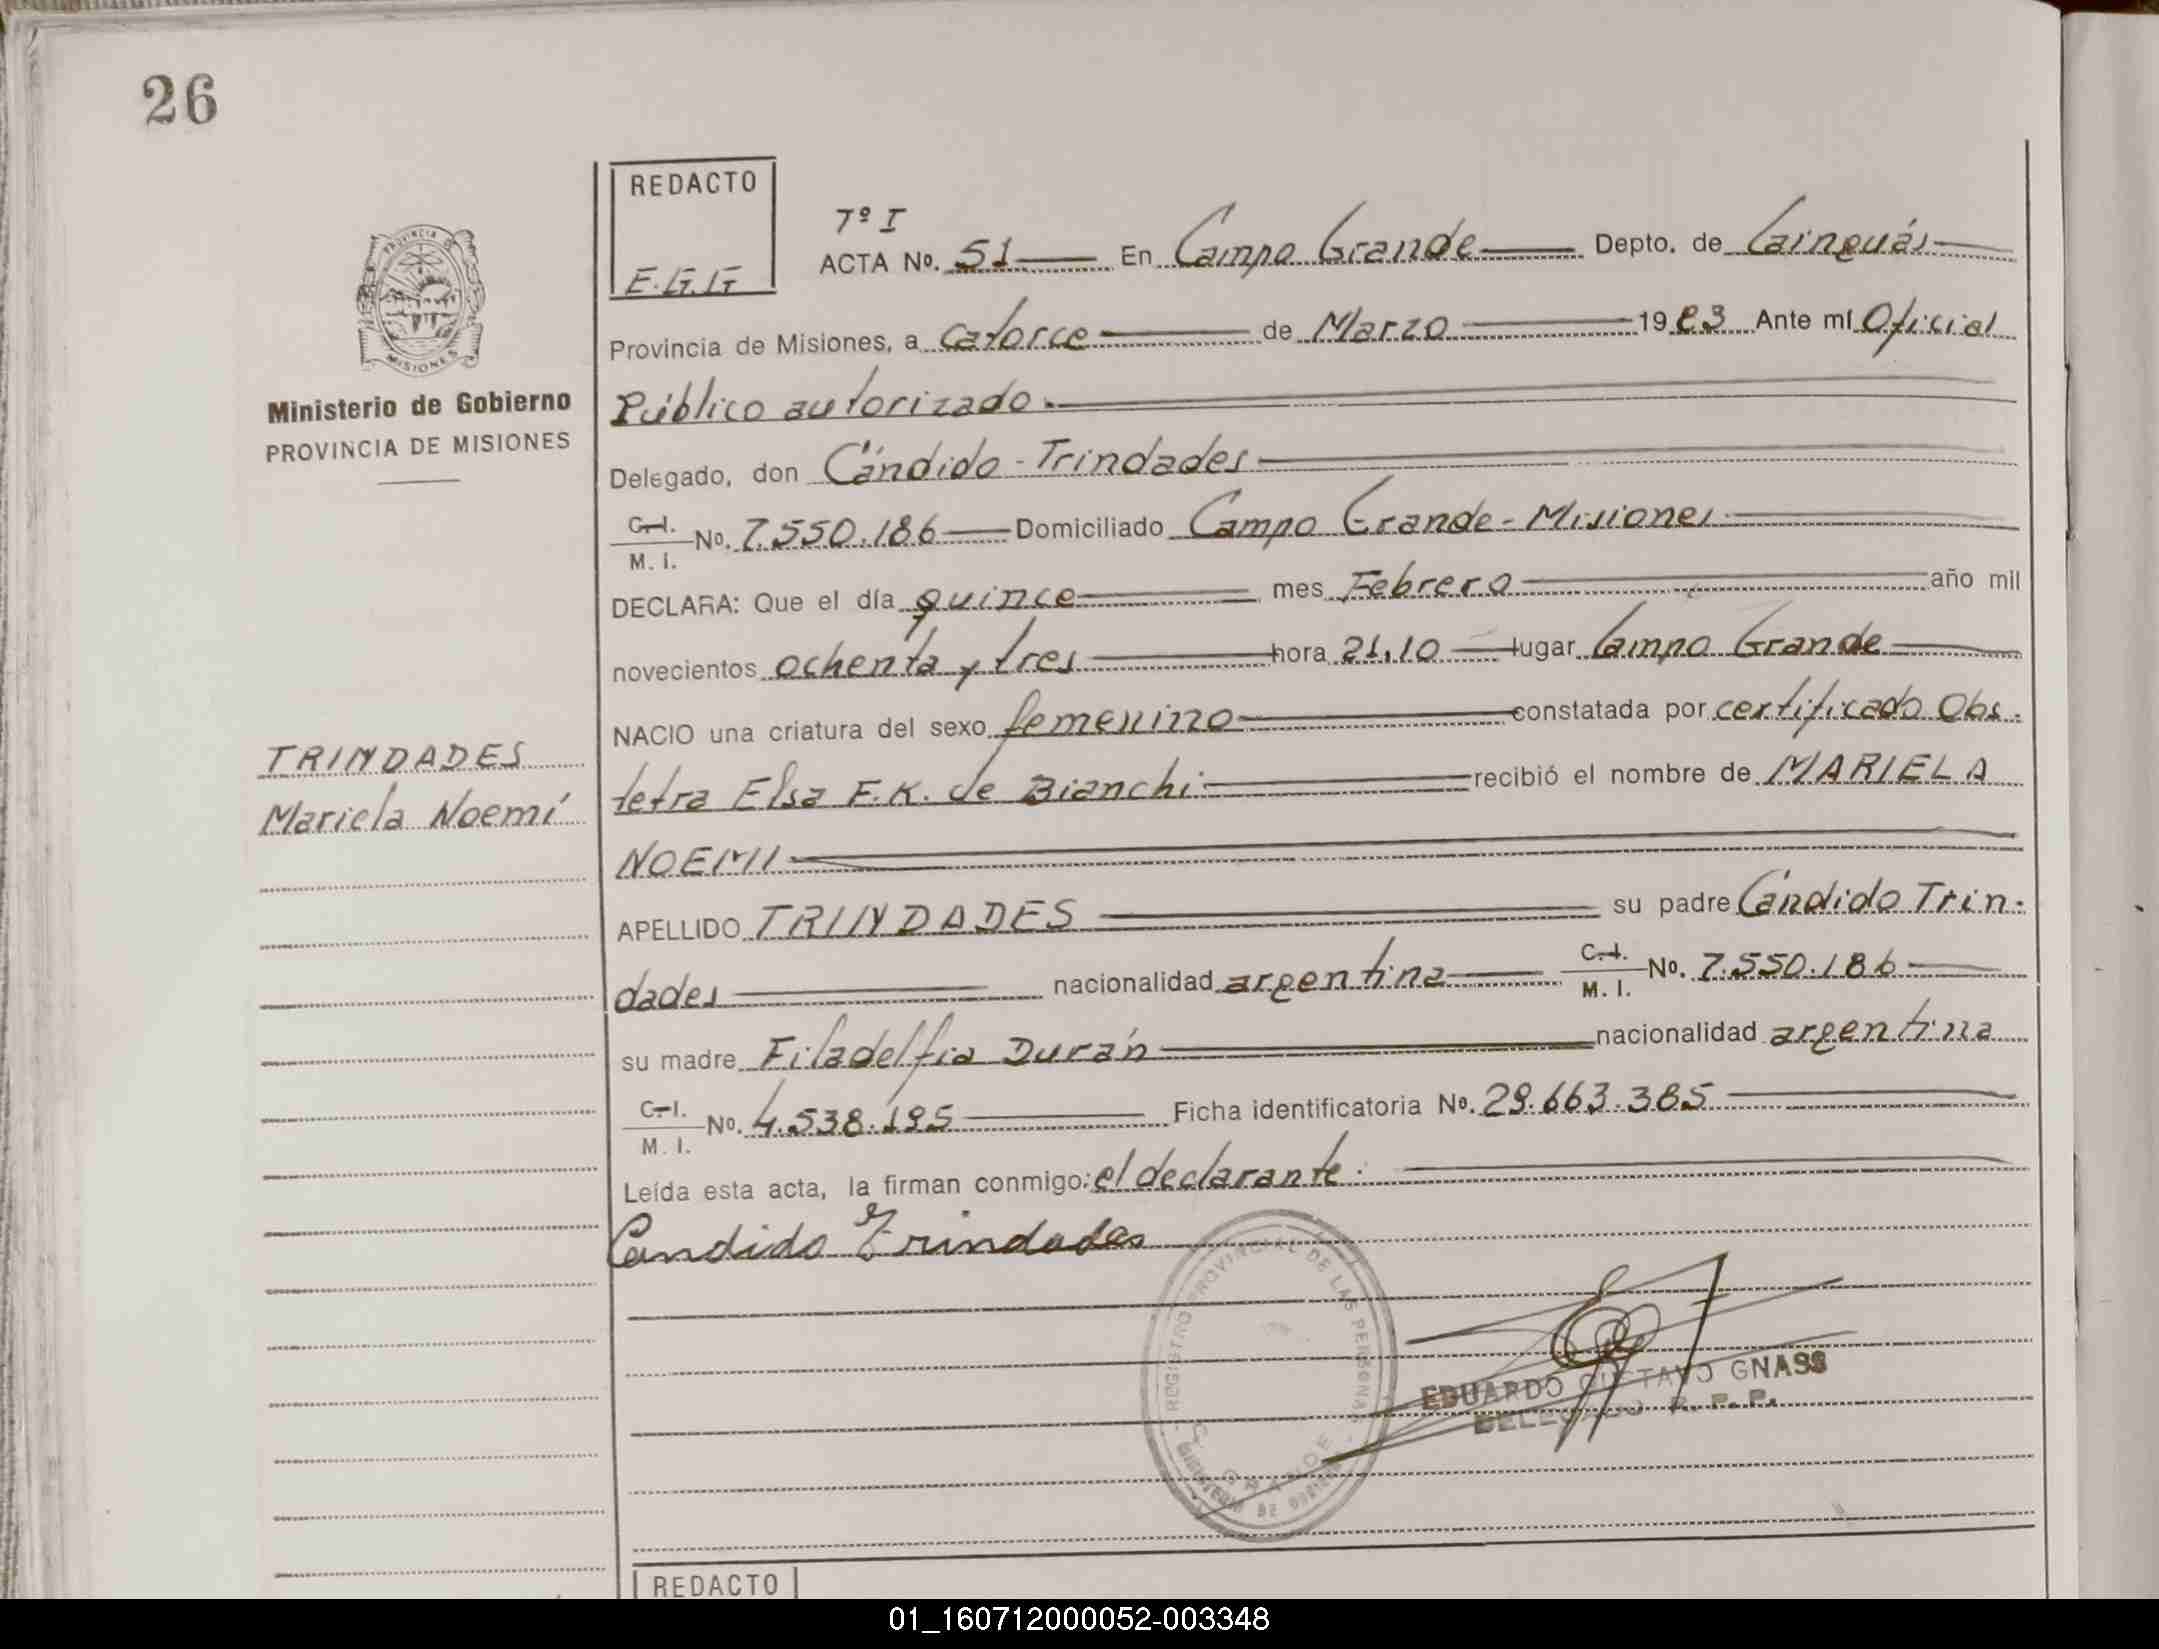 26
REDACTO
E.G.G
PROVINCIA DE
MISIONES
Ministerio de Gobierno
PROVINCIA DE MISIONES
Tº I
ACTA No. 51 En Campo Grande Depto. de Cainguás
Provincia de Misiones, a catorce de Marzo 1983 Ante mí Oficial
Público autorizado.
Delegado, don Cándido Trindades
C.I. M. I. No. 7.550.186 Domiciliado Campo Grande - Misiones
DECLARA: Que el día quince mes Febrero año mil
novecientos ochenta y tres hora 21.10 lugar Campo Grande
NACIO una criatura del sexo femenino constatada por certificado Obs-
tetra Elsa F.K. de Bianchi recibió el nombre de MARIELA
NOEMI
APELLIDO TRINDADES su padre Cándido Trin-
dades nacionalidad argentina C.I. M. I. No. 7.550.186
su madre Filadelfia Durán nacionalidad argentina
C.I. M. I. No. 4.538.195 Ficha identificatoria No. 29.663.385
Leída esta acta, la firman conmigo: el declarante.
Candido Trindades
TRINDADES
Mariela Noemí
REGISTRO PROVINCIAL DE LAS PERSONAS
C. GRANDE
MINISTERIO DE GOBIERNO
EDUARDO GUSTAVO GNASS
DELEGADO R. P. P.
REDACTO
01_160712000052-003348